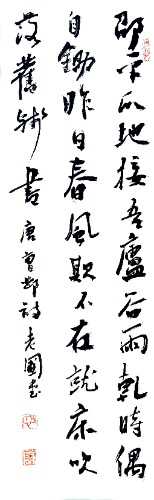 邵平瓜地接吾廬谷雨乾時偶
自鋤昨日春風欺不在就床吹
落舊殘書 唐曹鄴詩老圃堂